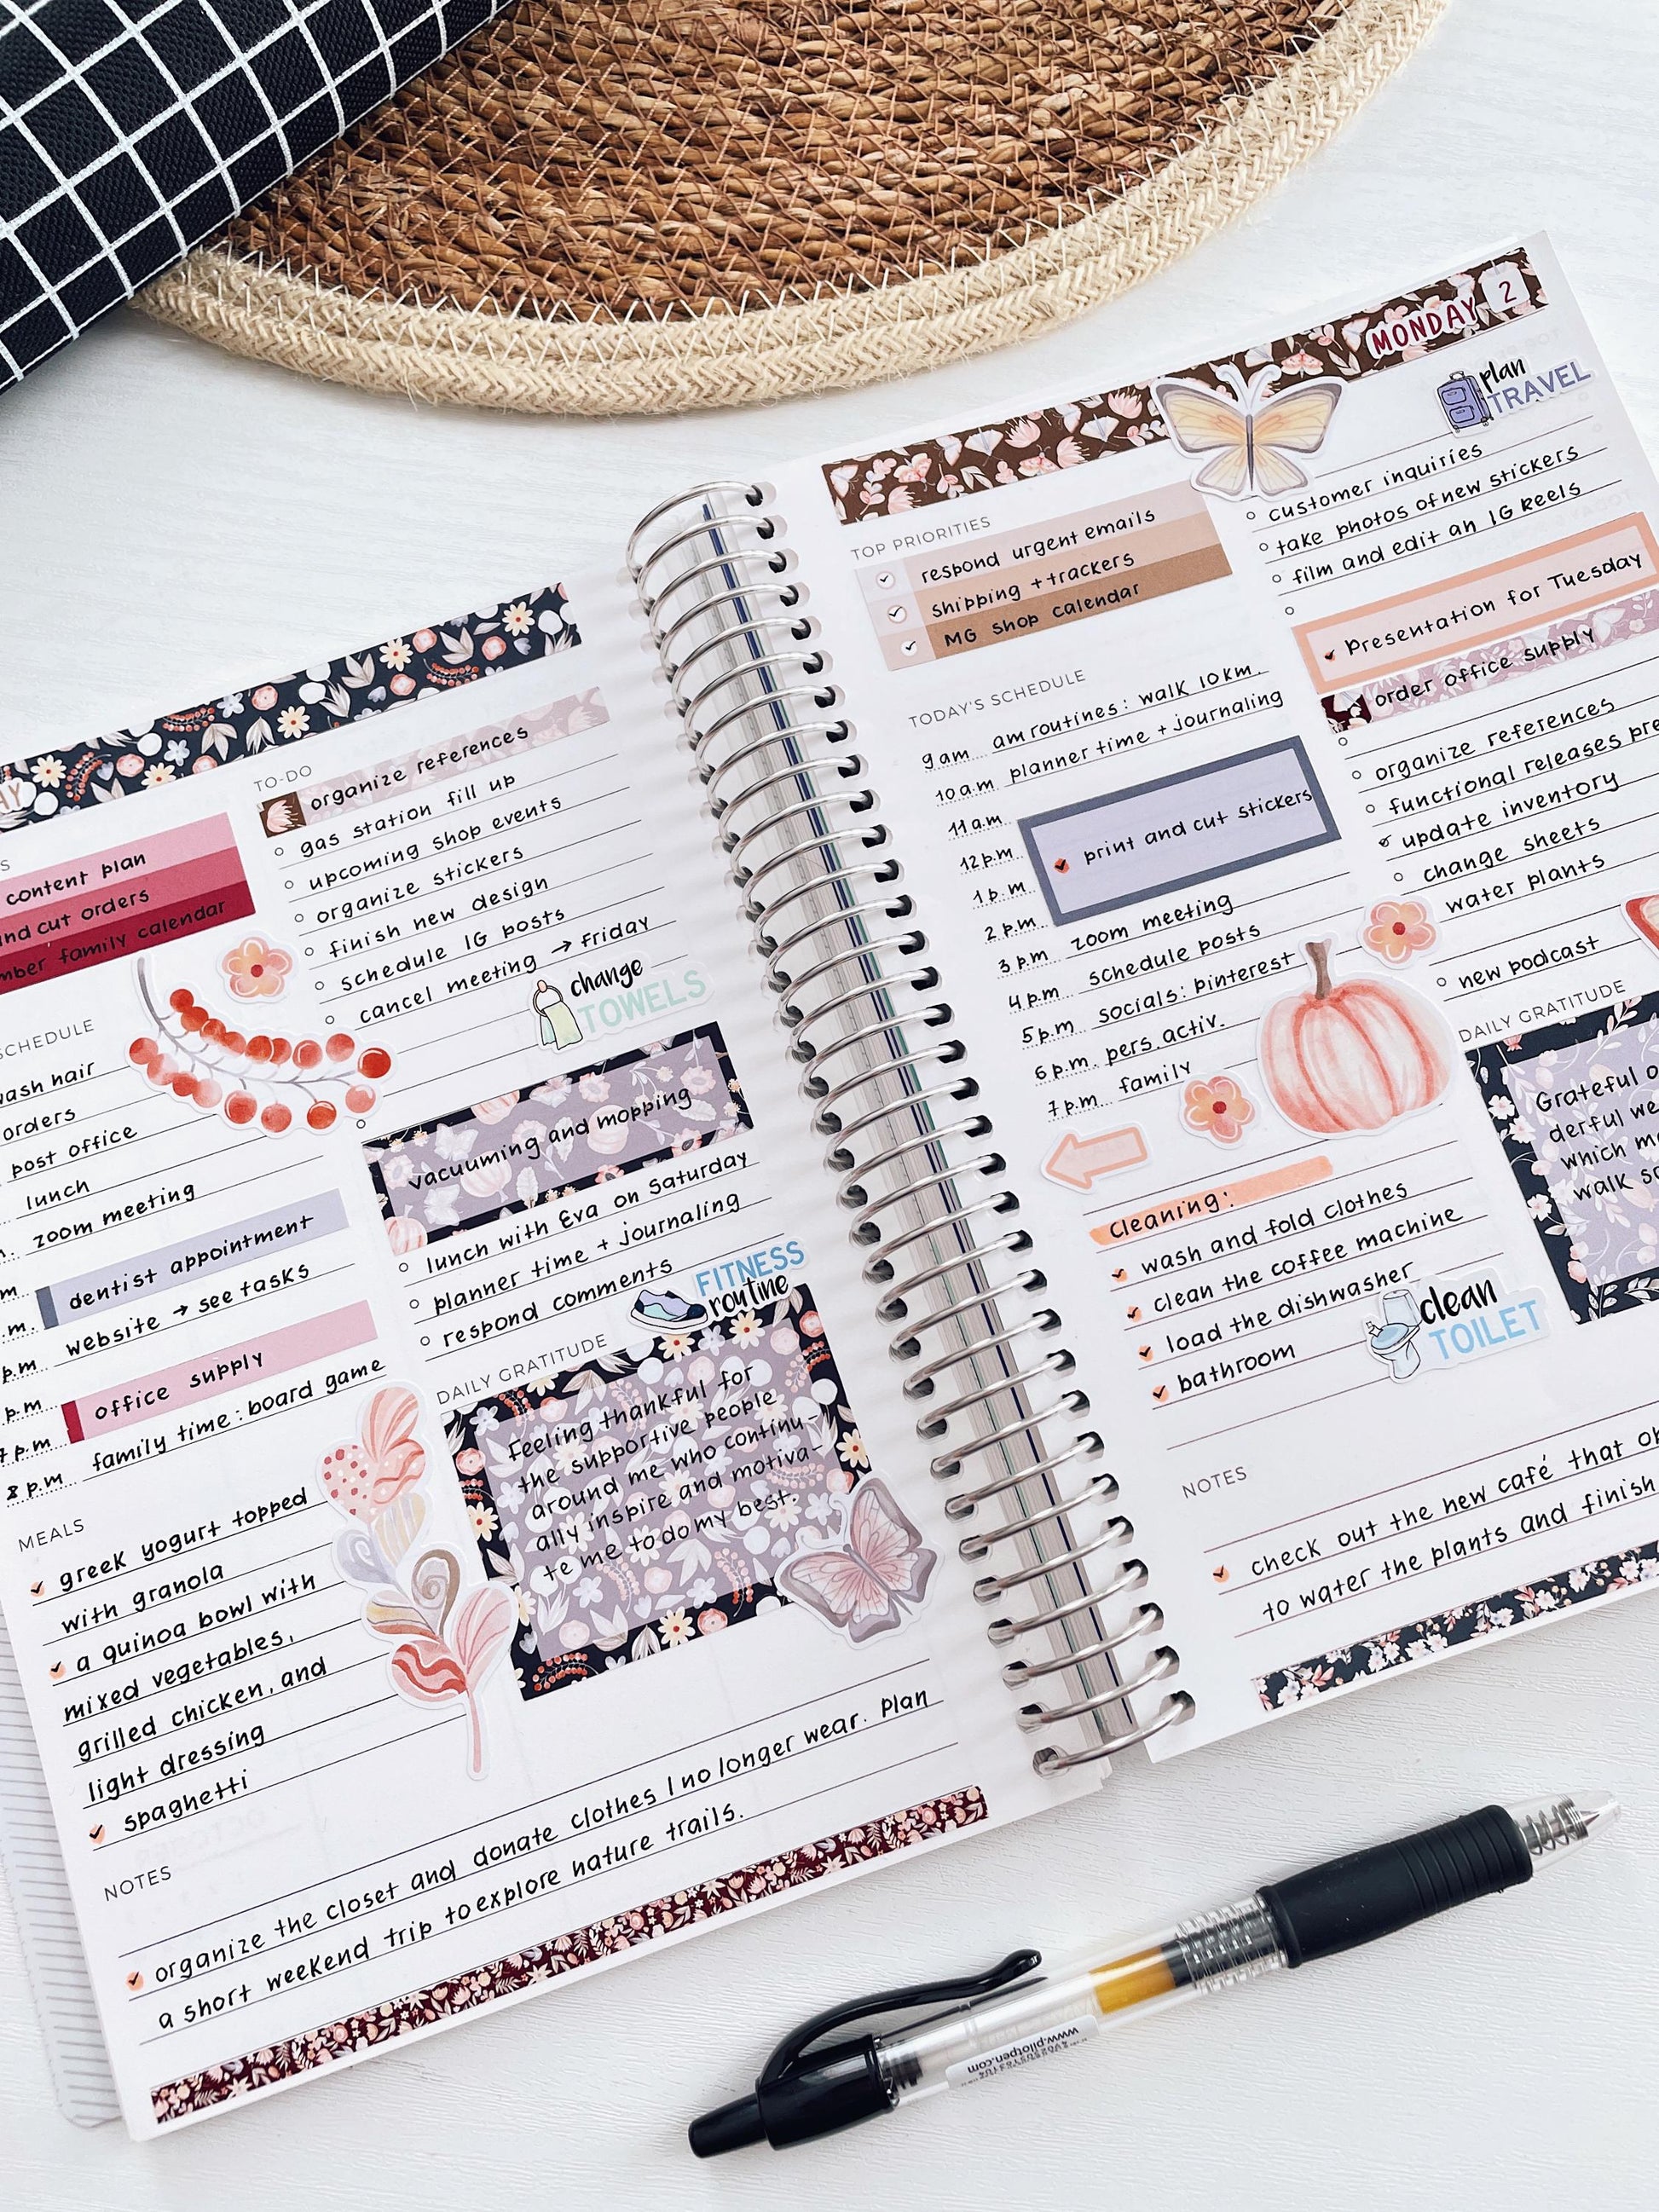 TO-DO
organize references
gas station fill up
upcoming shop events
organize stickers
finish new design
schedule IG posts
cancel meeting → Friday
change
TOWELS
content plan
cut orders
family calendar
SCHEDULE
wash hair
orders
post office
lunch
zoom meeting
dentist appointment
website → see tasks
office supply
family time: board game
8 p.m.
vacuuming and mopping
lunch with Eva on Saturday
planner time + journaling
respond comments
FITNESS
routine
DAILY GRATITUDE
Feeling thankful for
the supportive people
around me who continu-
ally inspire and motiva-
te me to do my best.
MEALS
greek yogurt topped
with granola
a quinoa bowl with
mixed vegetables,
grilled chicken, and
light dressing
spaghetti
NOTES
organize the closet and donate clothes I no longer wear. Plan
a short weekend trip to explore nature trails.
MONDAY 2
TOP PRIORITIES
respond urgent emails
shipping + trackers
MG shop calendar
TODAY'S SCHEDULE
9 am am routines: walk 10km.
10 a.m planner time + journaling
11 a.m.
12 p.m
print and cut stickers
1 p.m
2 p.m zoom meeting
3 p.m schedule posts
4 p.m socials: pinterest
5 p.m pers. activ.
6 p.m. family
7 p.m
cleaning:
wash and fold clothes
clean the coffee machine
load the dishwasher
bathroom
clean
TOILET
plan
TRAVEL
customer inquiries
take photos of new stickers
film and edit an IG Reels
Presentation for Tuesday
order office supply
organize references
functional releases pre
update inventory
change sheets
water plants
new podcast
DAILY GRATITUDE
Grateful
derful we
which m
walk
NOTES
check out the new café that
to water the plants and finish
www.pilotpen.com